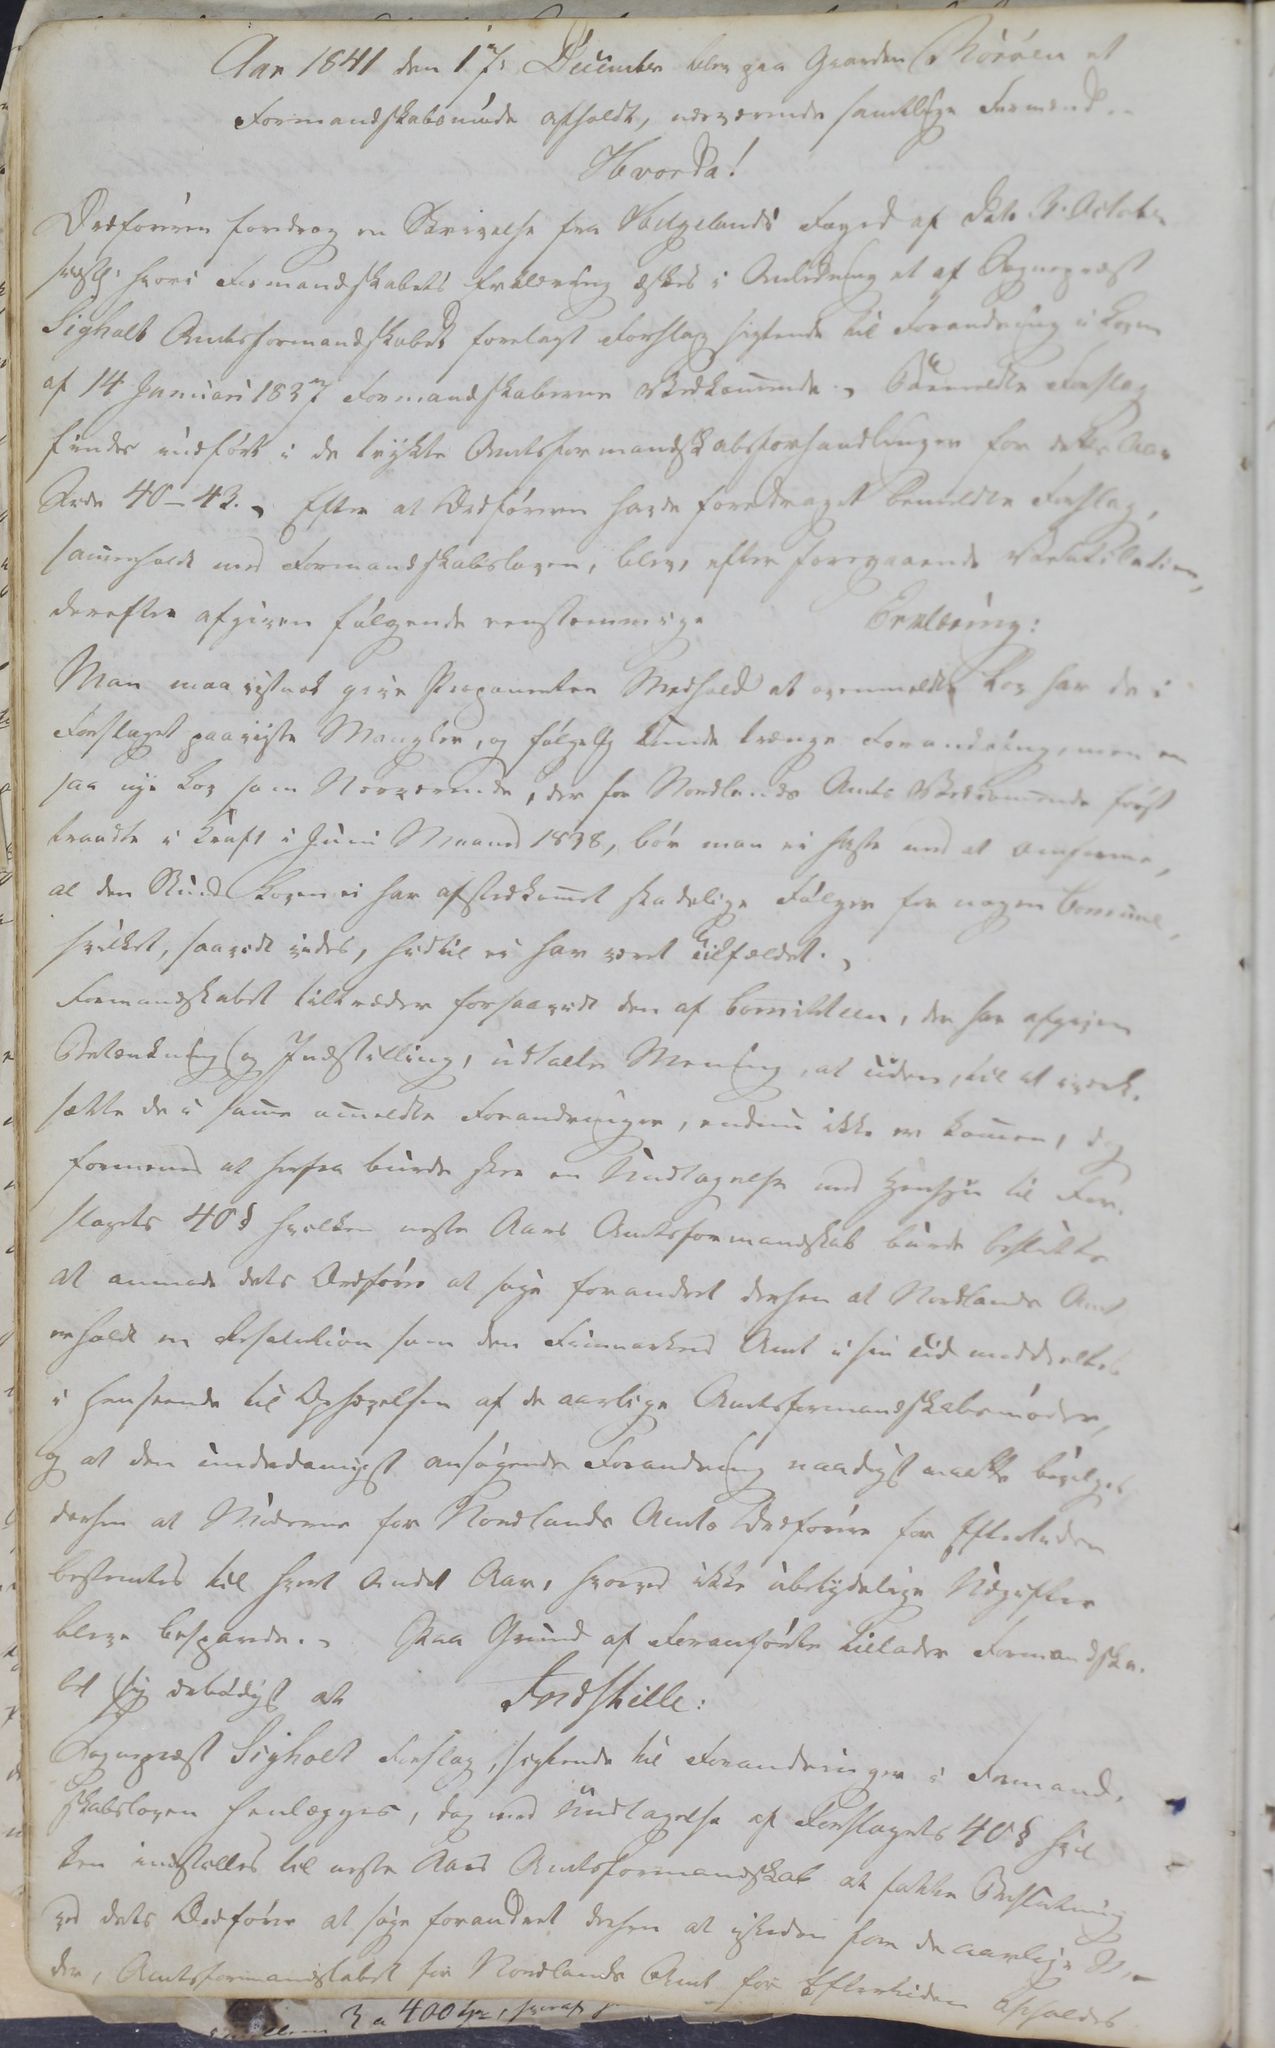 Aar 1841 den 17. December blev paa Gaarden Röröen et
Formandskabsmöde afholdt, nærværende samtlige Formænd. –
Hvorda!
Ordföreren foredrog en Skrivelse fra Helgelands Foged af Dato 3. October
sidstl. hvori Formandskabets Erklæring æskes i Anledning et af Sognepræst
Sigholt Amtsformandskabet forelagt Forslag sigtende til Forandring i Loven
af 14 Januari 1837 Formandskaberne Vedkommende. Bemeldte Forslag
findes indfört i de trykte Amtsformandskabsforhandlinger for dette Aar
Side 40–43. Efter at Ordföreren havde foredraget bemeldte Forslag,
sammenholdt med Formandskabsloven, blev, efter foregaaende Ventilation,
derefter afgiven fölgende eenstemmige Erklæring:
Man maa vistnok give Proponenten Medhold at ovenmeldte Lov har de i
Forslaget paaviste Mangler, og fölgelig kunde trænge Forandring, men en
saa nye Lov som Nærværende, der for Nordlands Amts Vedkommende först
traadte i Kraft i Juni Maaned 1838, bör man ei haste med at omforme,
al den Stund Loven ei har afstedkommet skadelige Fölger for nogen Comune,
hvilket, saavidt vides, hidtil ei har været Tilfældet.
Formandskabet tiltræder forsaavidt den af Comitteen, der har afgiven
Betænkning og Indstilling, udtalte Mening, at Tiden, til at iværk-
sætte de i samme ommeldte Forandringer, endnu ikke er kommen, dog
formenes at herfra burde skee en Undtagelse med Hensyn til For-
slagets 40 § hvilken næste Aars Amtsformandskab burde beslutte
at anmode dets Ordförer at söge forandret derhen at Nordlands Amt
erholdt en Resolution som den Finmarkens Amt i sin Tid meddeeltes
i Henseende til Ophævelsen af de aarlige Amtsformandskabsmöder,
og at den underdanigst ansögende Forandring naadigst maatte bevilges
derhen at Möderne for Nordlands Amts Ordförere for Eftertiden
bestemtes til hvert andet Aar, hvorved ikke ubetydelige Udgifter
bleve besparede. – Paa Grund af Foranförte tillader Formandska-
bet sig ærbödigst at Indstille:
Sognepræst Sigholt Forslag, sigtende til Forandringer i Formand-
skabsloven henlægges, dog med Undtagelse af Forslagets 40 § hvil
ken indstilles til næste Aars Amtsformandskab at fatte Beslutning
ved dets Ordförer at söge forandret derhen at isteden for de aarlige Mö-
der, Amtsformandskabet for Nordlands Amt for Eftertiden afholdes
3 a 400